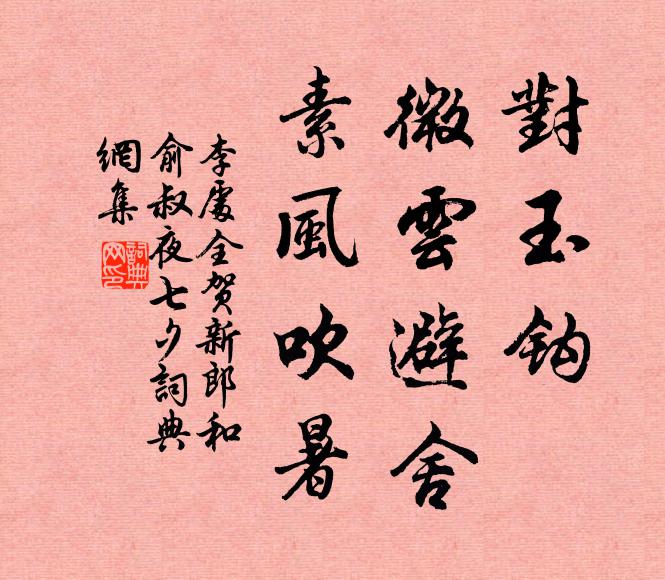 對玉鈎
微雲避舍
素風吹暑
李處全賀新郎和
俞叔夜七夕詞典
網集
詞典
網印